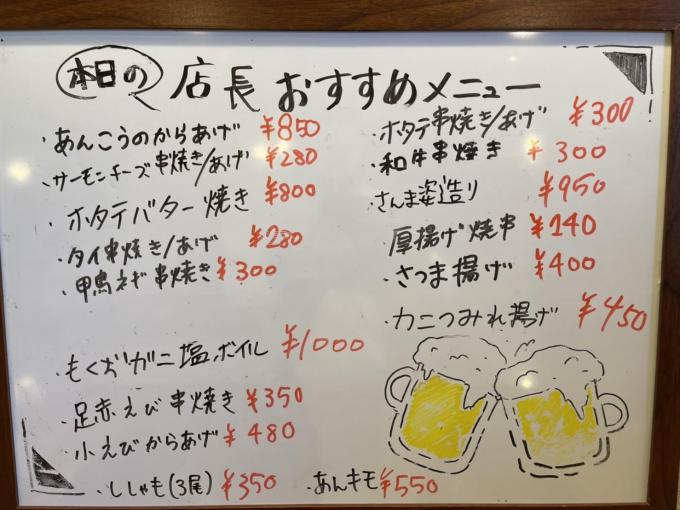 本日の 店長おすすめメニュー
・あんこうのからあげ ¥850
・サーモンチーズ串焼き/あげ ¥280
・ホタテバター焼き ¥800
・タイ串焼き/あげ ¥280
・鴨ネギ串焼き ¥300
・もくずガニ塩ボイル ¥1000
・足赤えび串焼き ¥350
・小えびからあげ ¥480
・ししゃも(3尾) ¥350
・あんキモ ¥550
・ホタテ串焼き/あげ ¥300
・和牛串焼き ¥300
さんま姿造り ¥950
厚揚げ焼串 ¥140
・さつま揚げ ¥400
・カニつみれ揚げ ¥450